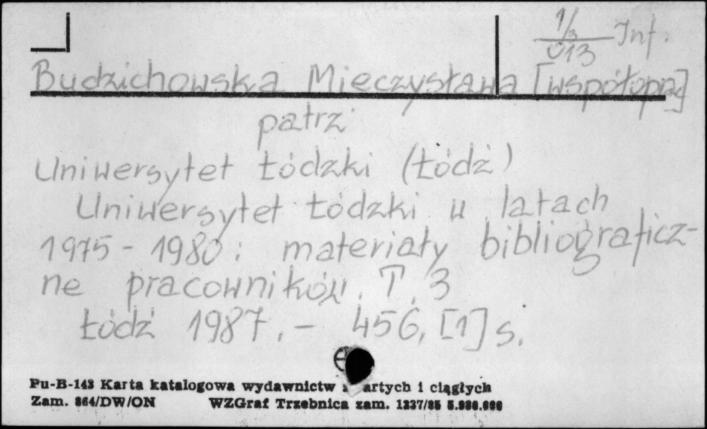 1/3 Inf.
013
Budzichowska Mieczysława [współoprac]
patrz
Uniwersytet Łódzki (Łódź)
Uniwersytet Łódzki w latach
1975-1980: materiały bibliograficz-
ne pracowników. T. 3
Łódź 1987.- 456, [1] s.
Pu-B-143 Karta katalogowa wydawnictw zwartych i ciągłych
Zam. 864/DW/ON WZGraf Trzebnica zam. 1337/85